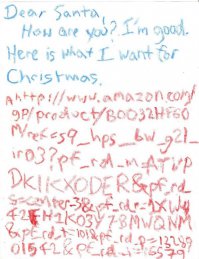 Dear Santa,
How are you? I'm good.
Here is what I want for
Christmas.
http://www.amazon.com/
gp/product/B0032HF60
M/ref=s9_hps_bw_g21_
ir03?pf_rd_m=ATVP
DKIKX0DER&pf_rd
s=center-3&pf_rd_r=1XW4
42EH2K03Y7BMWQNM
&pf_rd_t=101&pf_rd_p=13239
01542&pf_rd_i=16579